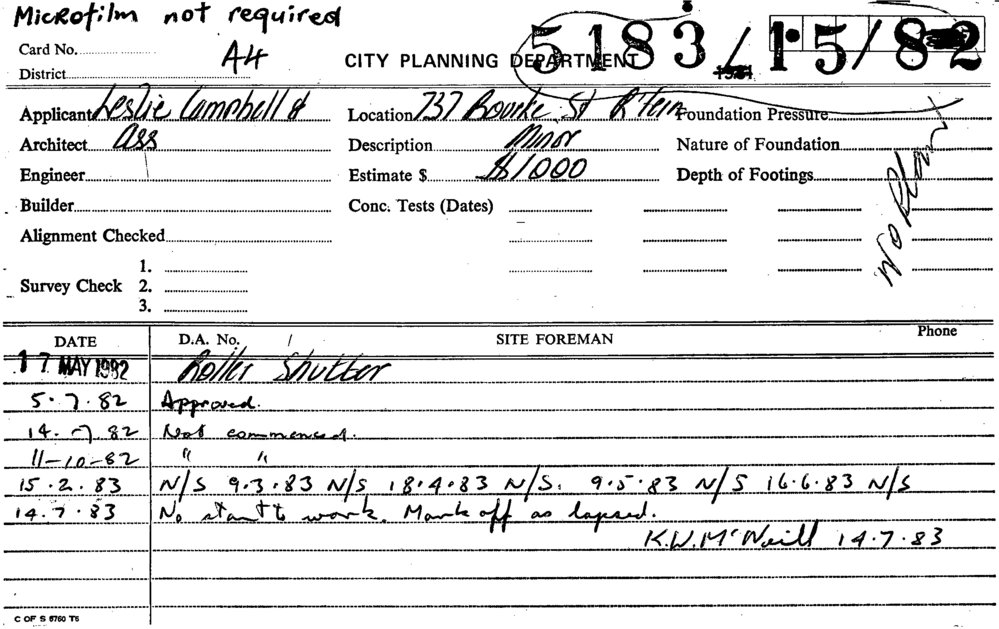 Microfilm not required
5183/15/82
Card No. A4
CITY PLANNING DEPARTMENT
District
Applicant Leslie Campbell & Location 737 Bourke St R'fern Foundation Pressure
Architect Ass Description Minor Nature of Foundation
Engineer Estimate $ $1000 Depth of Footings
No Plan
Builder Conc. Tests (Dates)
Alignment Checked
1.
Survey Check 2.
3.
DATE D.A. No. SITE FOREMAN Phone
17 MAY 1982 Roller Shutter
5.7.82 Approved.
14.7.82 Not commenced.
11-10-82 " "
15.2.83 N/S 9.3.83 N/S 18.4.83 N/S. 9.5.83 N/S 16.6.83 N/S
14.7.83 No start to work. Mark off as lapsed.
K.W. McNeill 14.7.83
C OF S 5760 T5